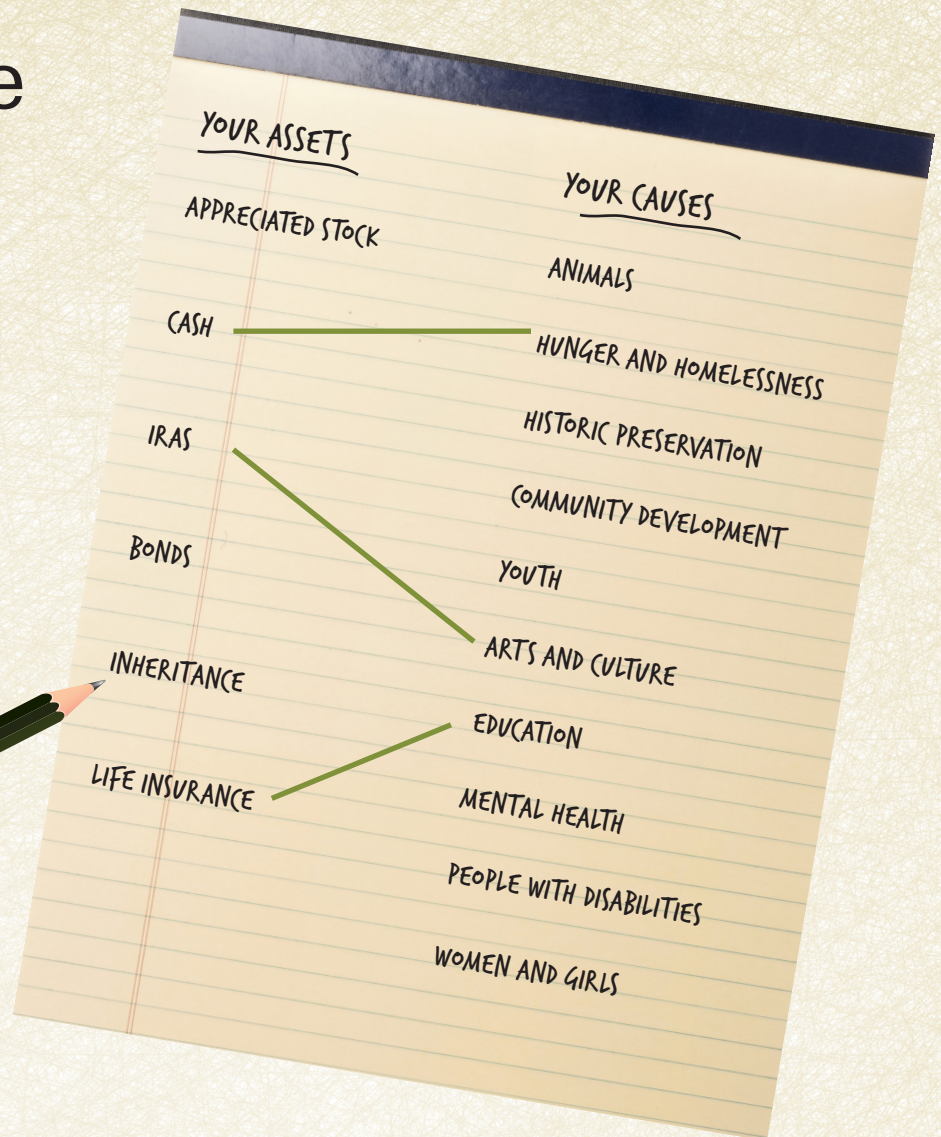 e
YOUR ASSETS
APPRECIATED STOCK
CASH
IRAS
BONDS
INHERITANCE
LIFE INSURANCE
YOUR CAUSES
ANIMALS
HUNGER AND HOMELESSNESS
HISTORIC PRESERVATION
COMMUNITY DEVELOPMENT
YOUTH
ARTS AND CULTURE
EDUCATION
MENTAL HEALTH
PEOPLE WITH DISABILITIES
WOMEN AND GIRLS